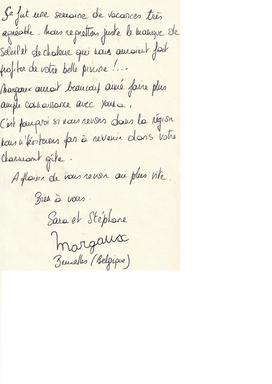 Ce fut une semaine de vacances très
agréable. Nous regrettons juste le manque de
soleil et de chaleur qui nous auraient fait
profiter de votre belle piscine !...
Margaux aurait beaucoup aimé faire plus
ample connaissance avec
C'est pourquoi si nous revenons dans la région
nous n'hésiterons pas à revenir dans votre
charmant gîte.
Au plaisir de vous revoir au plus vite.
Bien à vous.
Sara et Stéphane
Margaux
Bruxelles (Belgique)